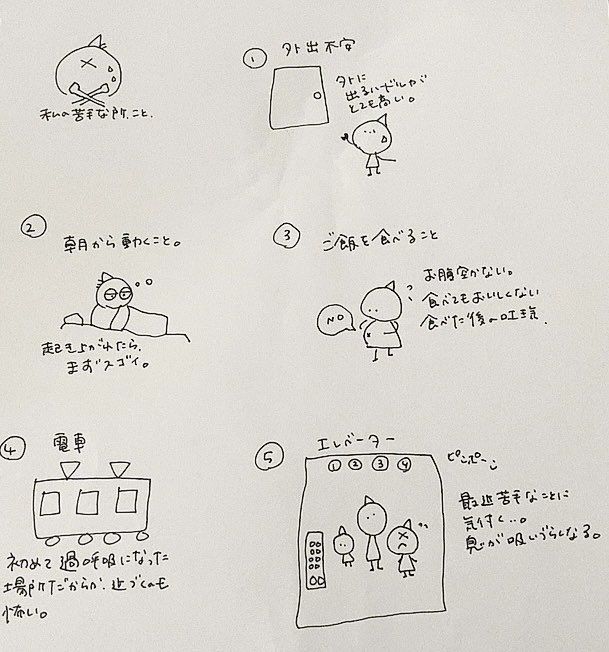 私の苦手な所、こと、
① 外出不安
外に
出るハードルが
とても高い。
②
朝から動くこと。
起き上がれたら、
まずスゴイ。
③ ご飯を食べること
お腹空かない。
食べてもおいしくない
食べた後の吐き気.
NO
④ 電車
初めて過呼吸になった
場所だからか、近づくのも
怖い。
⑤ エレベーター
① ② ③ ④
ピンポーン
最近苦手なことに
気付く…。
息が吸いづらくなる。